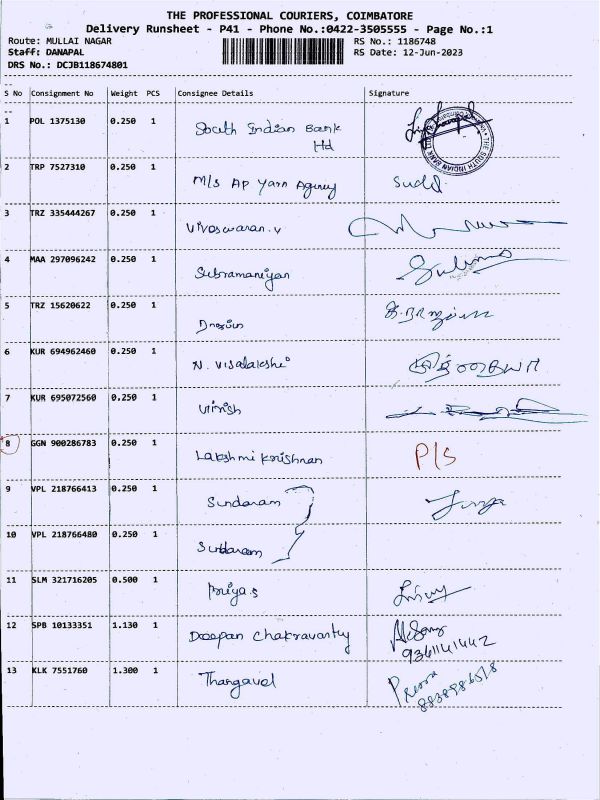 THE PROFESSIONAL COURIERS, COIMBATORE
Delivery Runsheet - P41 - Phone No.:0422-3505555 - Page No.:1
Route: MULLAI NAGAR RS No.: 1186748
Staff: DANAPAL RS Date: 12-Jun-2023
DRS No.: DCJB118674801
S No Consignment No Weight PCS Consignee Details Signature
1 POL 1375130 0.250 1 South Indian Bank
Ltd
THE SOUTH INDIAN BANK
2 TRP 7527310 0.250 1 M/s AP Yarn Agency
3 TRZ 335444267 0.250 1
4 MAA 297096242 0.250 1 Subramaniyan
5 TRZ 15620622 0.250 1
6 KUR 694962460 0.250 1 N. Visalakshi
7 KUR 695072560 0.250 1
8 GGN 900286783 0.250 1 Lakshmi Krishnan P/S
9 VPL 218766413 0.250 1 Sundaram
10 VPL 218766480 0.250 1 Sundaram
11 SLM 321716205 0.500 1 Priya.S
12 SPB 10133351 1.130 1 Deepan Chakravarthy
9361141442
13 KLK 7551760 1.300 1 Thangavel